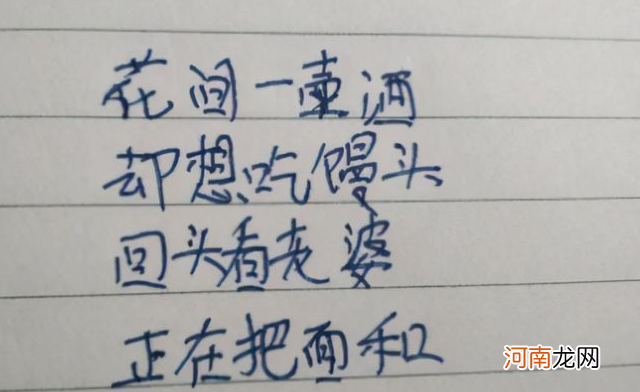 花间一壶酒
却想吃馒头
回头看老婆
正在把面和
河南龙网